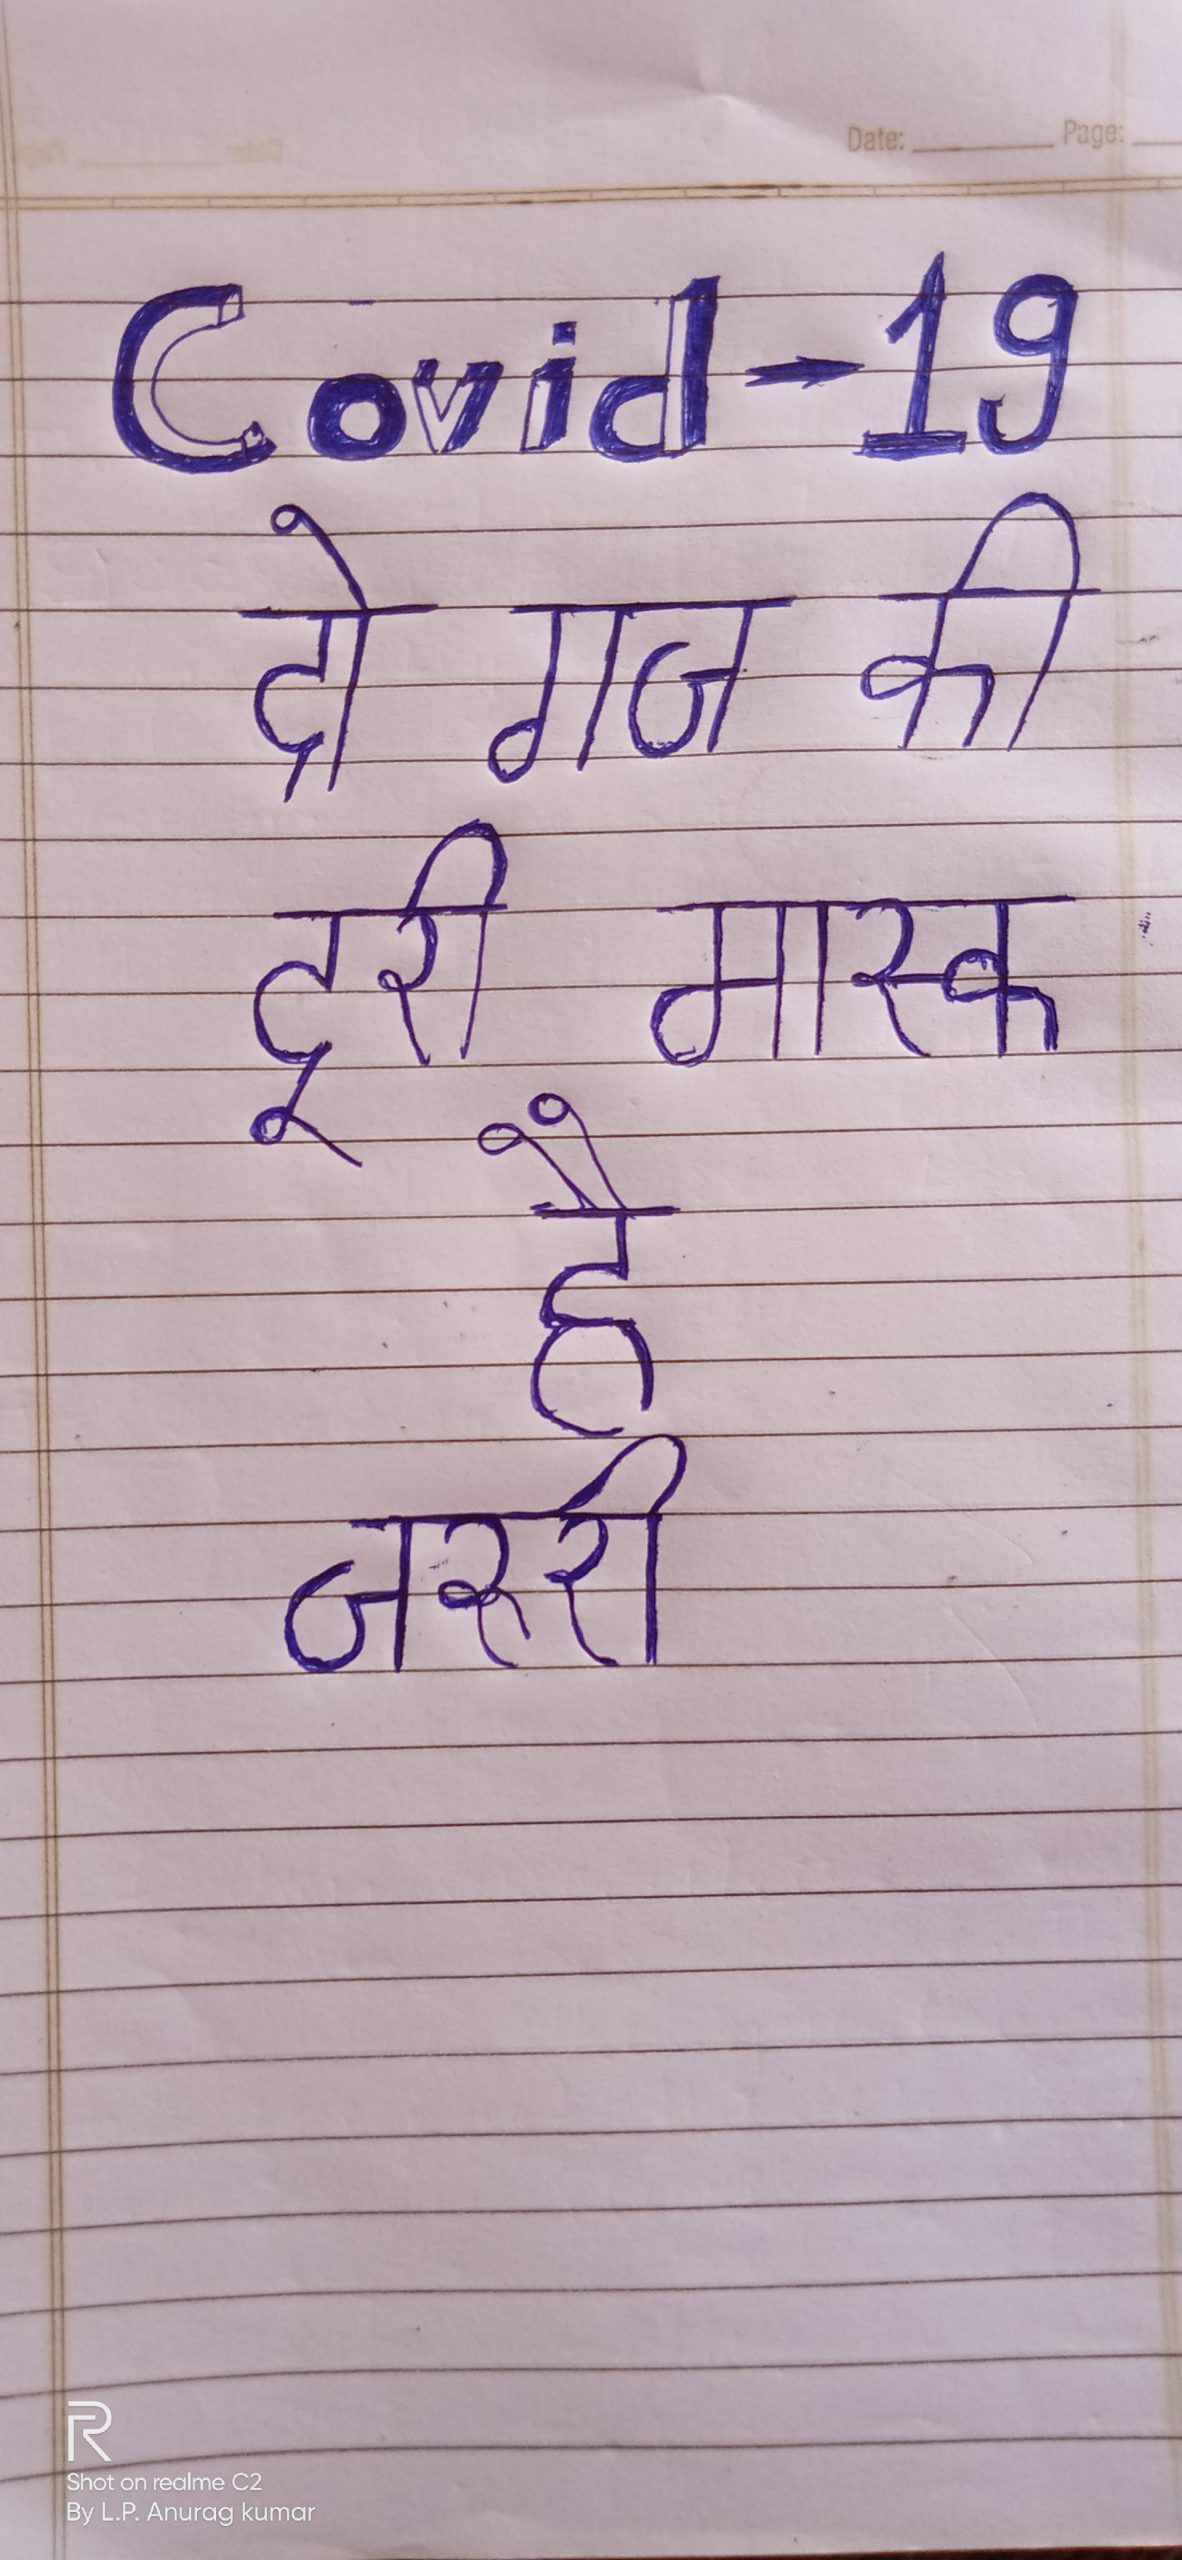 Date: Page:
Covid-19
दो गज की
दूरी मास्क
है
जरूरी
Shot on realme C2
By L.P. Anurag kumar